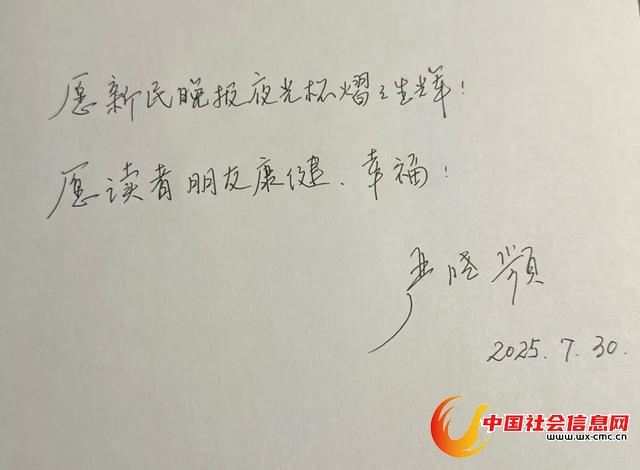 愿新民晚报夜光杯熠熠生辉！
愿读者朋友康健、幸福！
严晓频
2025.7.30.
中国社会信息网
www.wx-cmc.cn